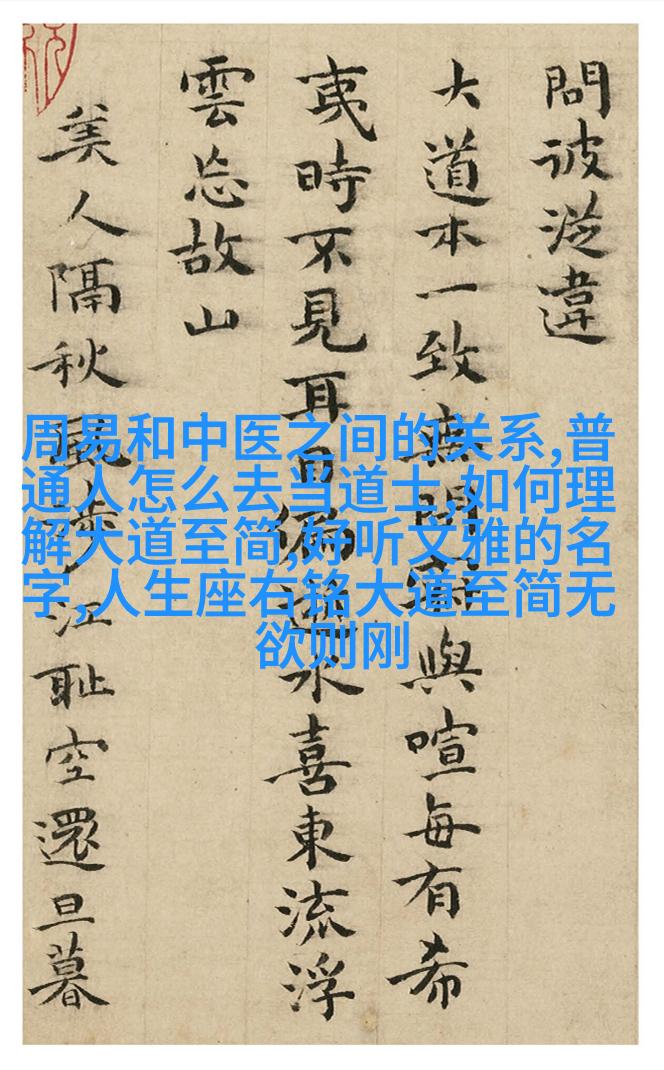 問彼從違
大道本一致無與喧每有希
夷時不見耳偏水喜東流浮
雲忘故山
美人隔秋風涉江耻空還旦暮
周易和中医之间的关系,普
通人怎么去当道士,如何理
解大道至简,好听文雅的名
字,人生座右铭大道至简无
欲则刚